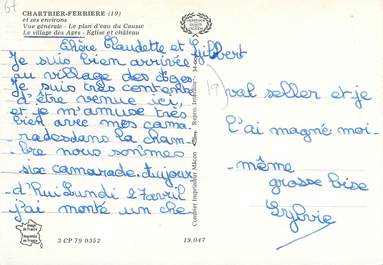 CHARTRIER-FERRIERE (19)
et ses environs
Vue générale - Le plan d'eau du Causse
Le village des Ages - Eglise et château
Chère Claudette et Gilbert
Je suis bien arrivée
au village des âges
Je suis très contente
d'être venue ici,
et je m'amuse très
bien avec mes cama
rades dans la cham-
bre nous sommes
six camarade. Aujour
d'hui Lundi 27 avril
j'ai monté un che
val seller et je
l'ai magné moi-
même
grosse bise
Sylvie
3 CP 79 0352
19.047
Combier Imprimeur Mâcon